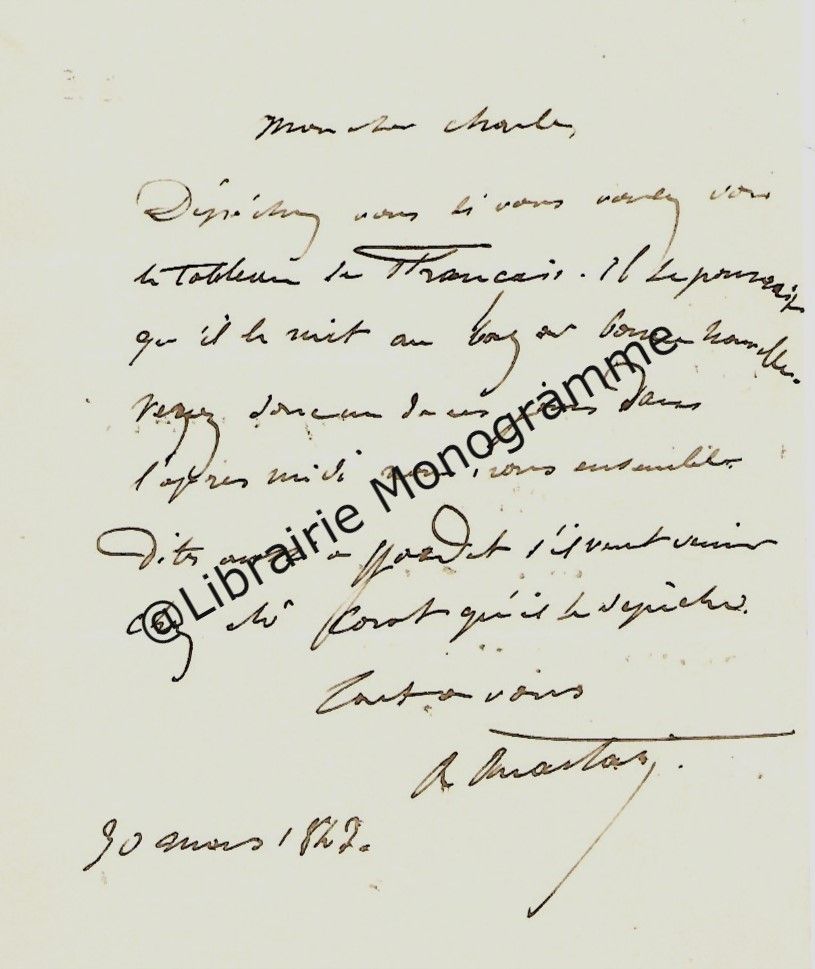 Mon cher Charles,
Dépêchez vous si vous voulez voir
le tableau de Français. Il se pourrait
qu'il le mit au bazar bonne nouvelle.
Venez donc un de ces jours dans
l'après midi nous irons ensemble.
Dites aussi a s'il veut venir
chez Mr Corot qu'il se dépêche.
Tout a vous
A Anastasi.
30 mars 1847.
@Librairie Monogramme